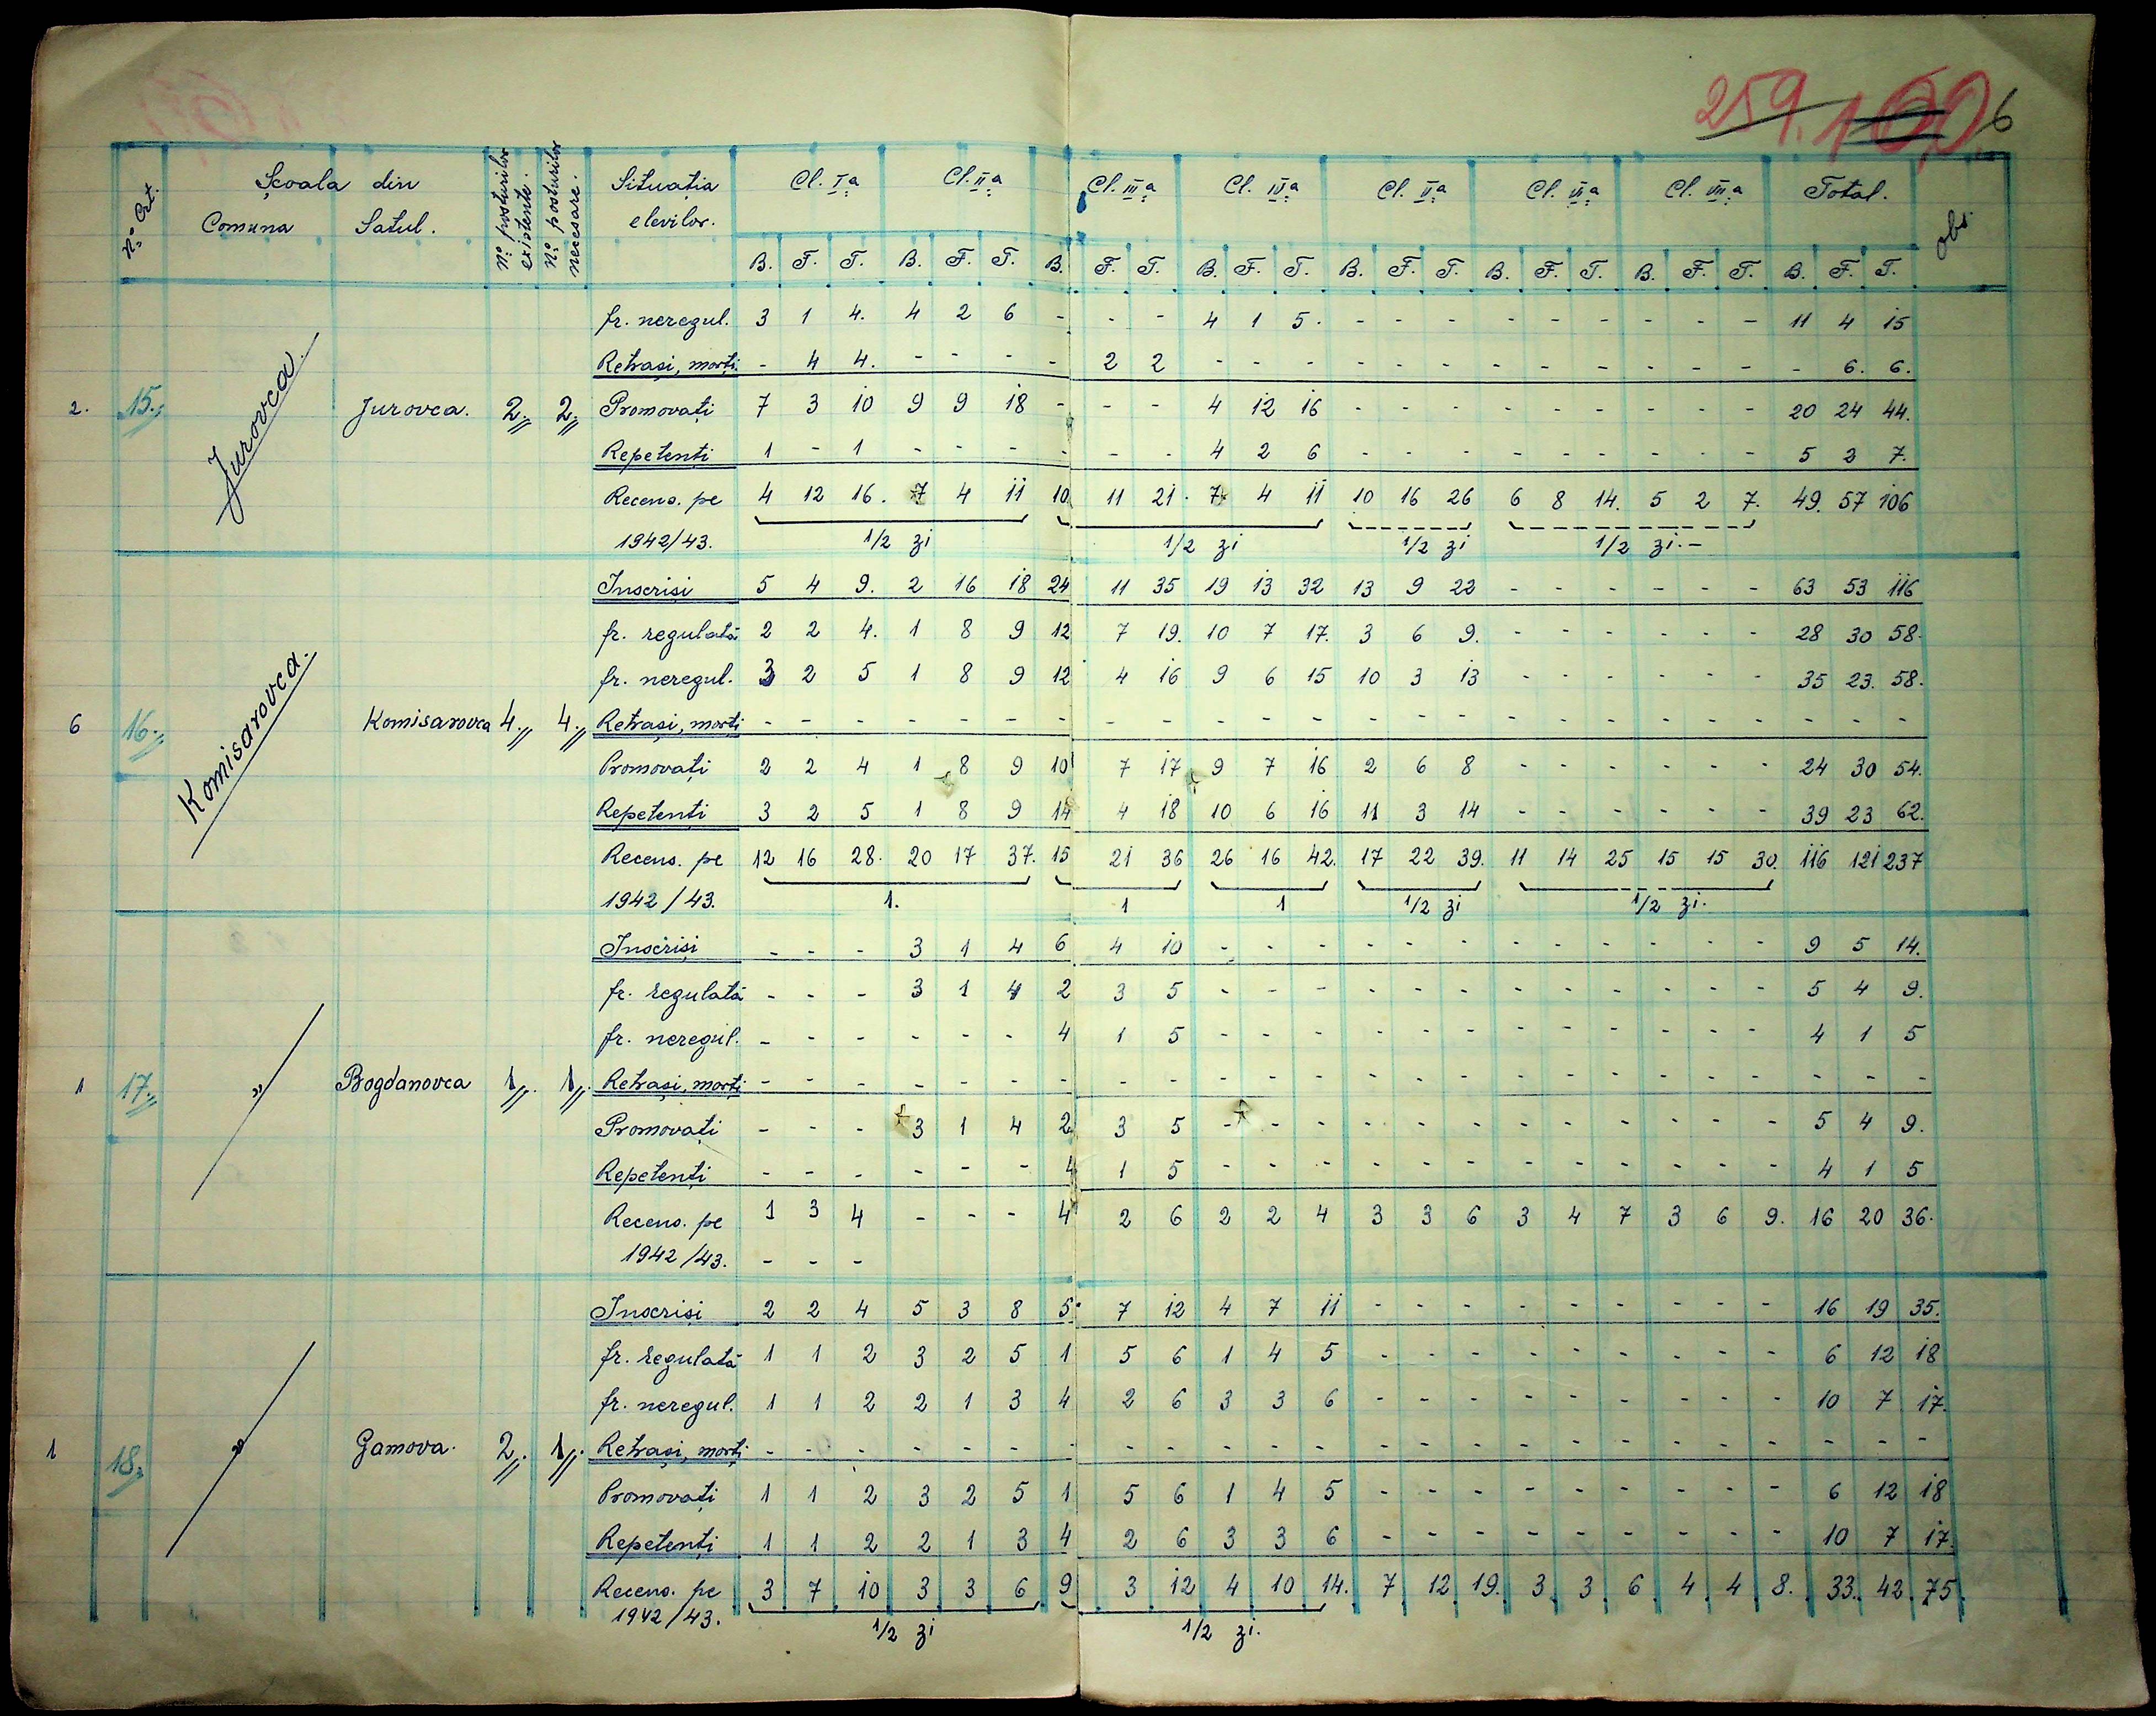 259. 160. 6
N.º Crt. Școala din N.º posturilor existente. N.º posturilor necesare. Situația elevilor. Cl. I a Cl. II a Cl. III a Cl. IV a Cl. V a Cl. VI a Cl. VII a Total. obs.
Comuna Satul.
B. F. T. B. F. T. B. F. T. B. F. T. B. F. T. B. F. T. B. F. T. B. F. T.
fr. neregul. 3 1 4. 4 2 6 - - - 4 1 5. - - - - - - - - - 11 4 15
Retrași, morți. - 4 4. - - - - 2 2 - - - - - - - - - - - - - 6. 6.
2. 15. Jurovca. Jurovca. 2 2 Promovați 7 3 10 9 9 18 - - - 4 12 16 - - - - - - - - - 20 24 44.
Repetenți 1 - 1 - - - - - - 4 2 6 - - - - - - - - - 5 2 7.
Recens. pe 4 12 16. 7 4 11 10 11 21. 7 4 11 10 16 26 6 8 14. 5 2 7. 49. 57 106
1942/43. 1/2 zi 1/2 zi 1/2 zi 1/2 zi.-
Inscriși 5 4 9. 2 16 18 24 11 35 19 13 32 13 9 22 - - - - - - 63 53 116
fr. regulată 2 2 4. 1 8 9 12 7 19. 10 7 17. 3 6 9. - - - - - - 28 30 58.
fr. neregul. 3 2 5 1 8 9 12 4 16 9 6 15 10 3 13 - - - - - - 35 23. 58.
6 16. Komisarovca. Komisarovca 4. 4. Retrași, morți - - - - - - - - - - - - - - - - - - - - - - - -
Promovați 2 2 4 1 8 9 10 7 17 9 7 16 2 6 8 - - - - - - 24 30 54.
Repetenți 3 2 5 1 8 9 14 4 18 10 6 16 11 3 14 - - - - - - 39 23 62.
Recens. pe 12 16 28. 20 17 37. 15 21 36 26 16 42. 17 22 39. 11 14 25 15 15 30. 116 121 237
1942/43. 1. 1 1 1/2 zi 1/2 zi.
Inscriși - - - 3 1 4 6 4 10 - - - - - - - - - - - - 9 5 14.
fr. regulată - - - 3 1 4 2 3 5 - - - - - - - - - - - - 5 4 9.
fr. neregul. - - - - - - 4 1 5 - - - - - - - - - - - - 4 1 5
1 17. " Bogdanovca 1. 1. Retrași, morți - - - - - - - - - - - - - - - - - - - - - - - -
Promovați - - - 3 1 4 2 3 5 - - - - - - - - - - - - 5 4 9.
Repetenți - - - - - - 4 1 5 - - - - - - - - - - - - 4 1 5
Recens. pe 1 3 4 - - - 4 2 6 2 2 4 3 3 6 3 4 7 3 6 9. 16 20 36.
1942/43. - - -
Inscriși 2 2 4 5 3 8 5 7 12 4 7 11 - - - - - - - - - 16 19 35.
fr. regulată 1 1 2 3 2 5 1 5 6 1 4 5 - - - - - - - - - 6 12 18
fr. neregul. 1 1 2 2 1 3 4 2 6 3 3 6 - - - - - - - - - 10 7 17.
1 18. " Gamova. 2. 1. Retrași, morți - - - - - - - - - - - - - - - - - - - - - - - -
Promovați 1 1 2 3 2 5 1 5 6 1 4 5 - - - - - - - - - 6 12 18
Repetenți 1 1 2 2 1 3 4 2 6 3 3 6 - - - - - - - - - 10 7 17.
Recens. pe 3 7 10 3 3 6 9 3 12 4 10 14. 7 12 19. 3 3 6 4 4 8. 33. 42. 75.
1942/43. 1/2 zi 1/2 zi.